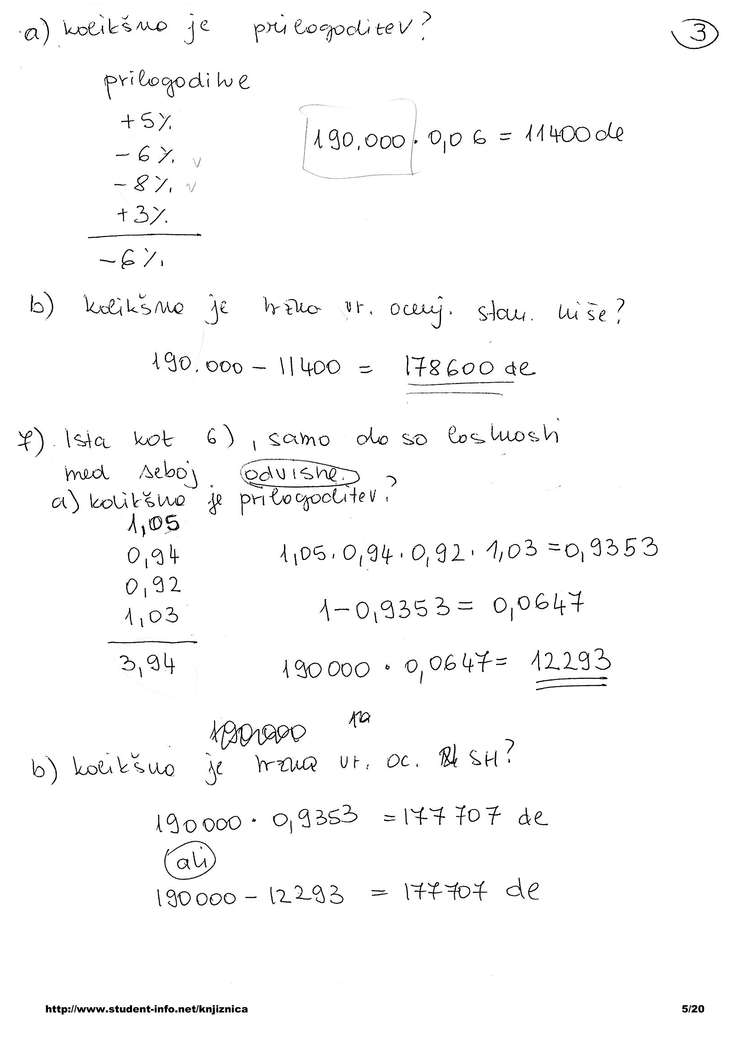 a) kolikšna je prilagoditev?
3
prilagoditve
+5%
-6% v
-8% v
+3%
-6%
190.000 · 0,06 = 11400 de
b) kolikšna je tržna vr. ocenj. stan. hiše?
190.000 - 11400 = 178600 de
7) Ista kot 6), samo da so lastnosti
med seboj odvisne.
a) kolikšna je prilagoditev?
1,05
0,94
0,92
1,03
3,94
1,05 · 0,94 · 0,92 · 1,03 = 0,9353
1-0,9353 = 0,0647
190000 · 0,0647 = 12293
b) kolikšna je tržna vr. oc. SH?
190000 · 0,9353 = 177707 de
ali
190000 - 12293 = 177707 de
http://www.student-info.net/knjiznica
5/20